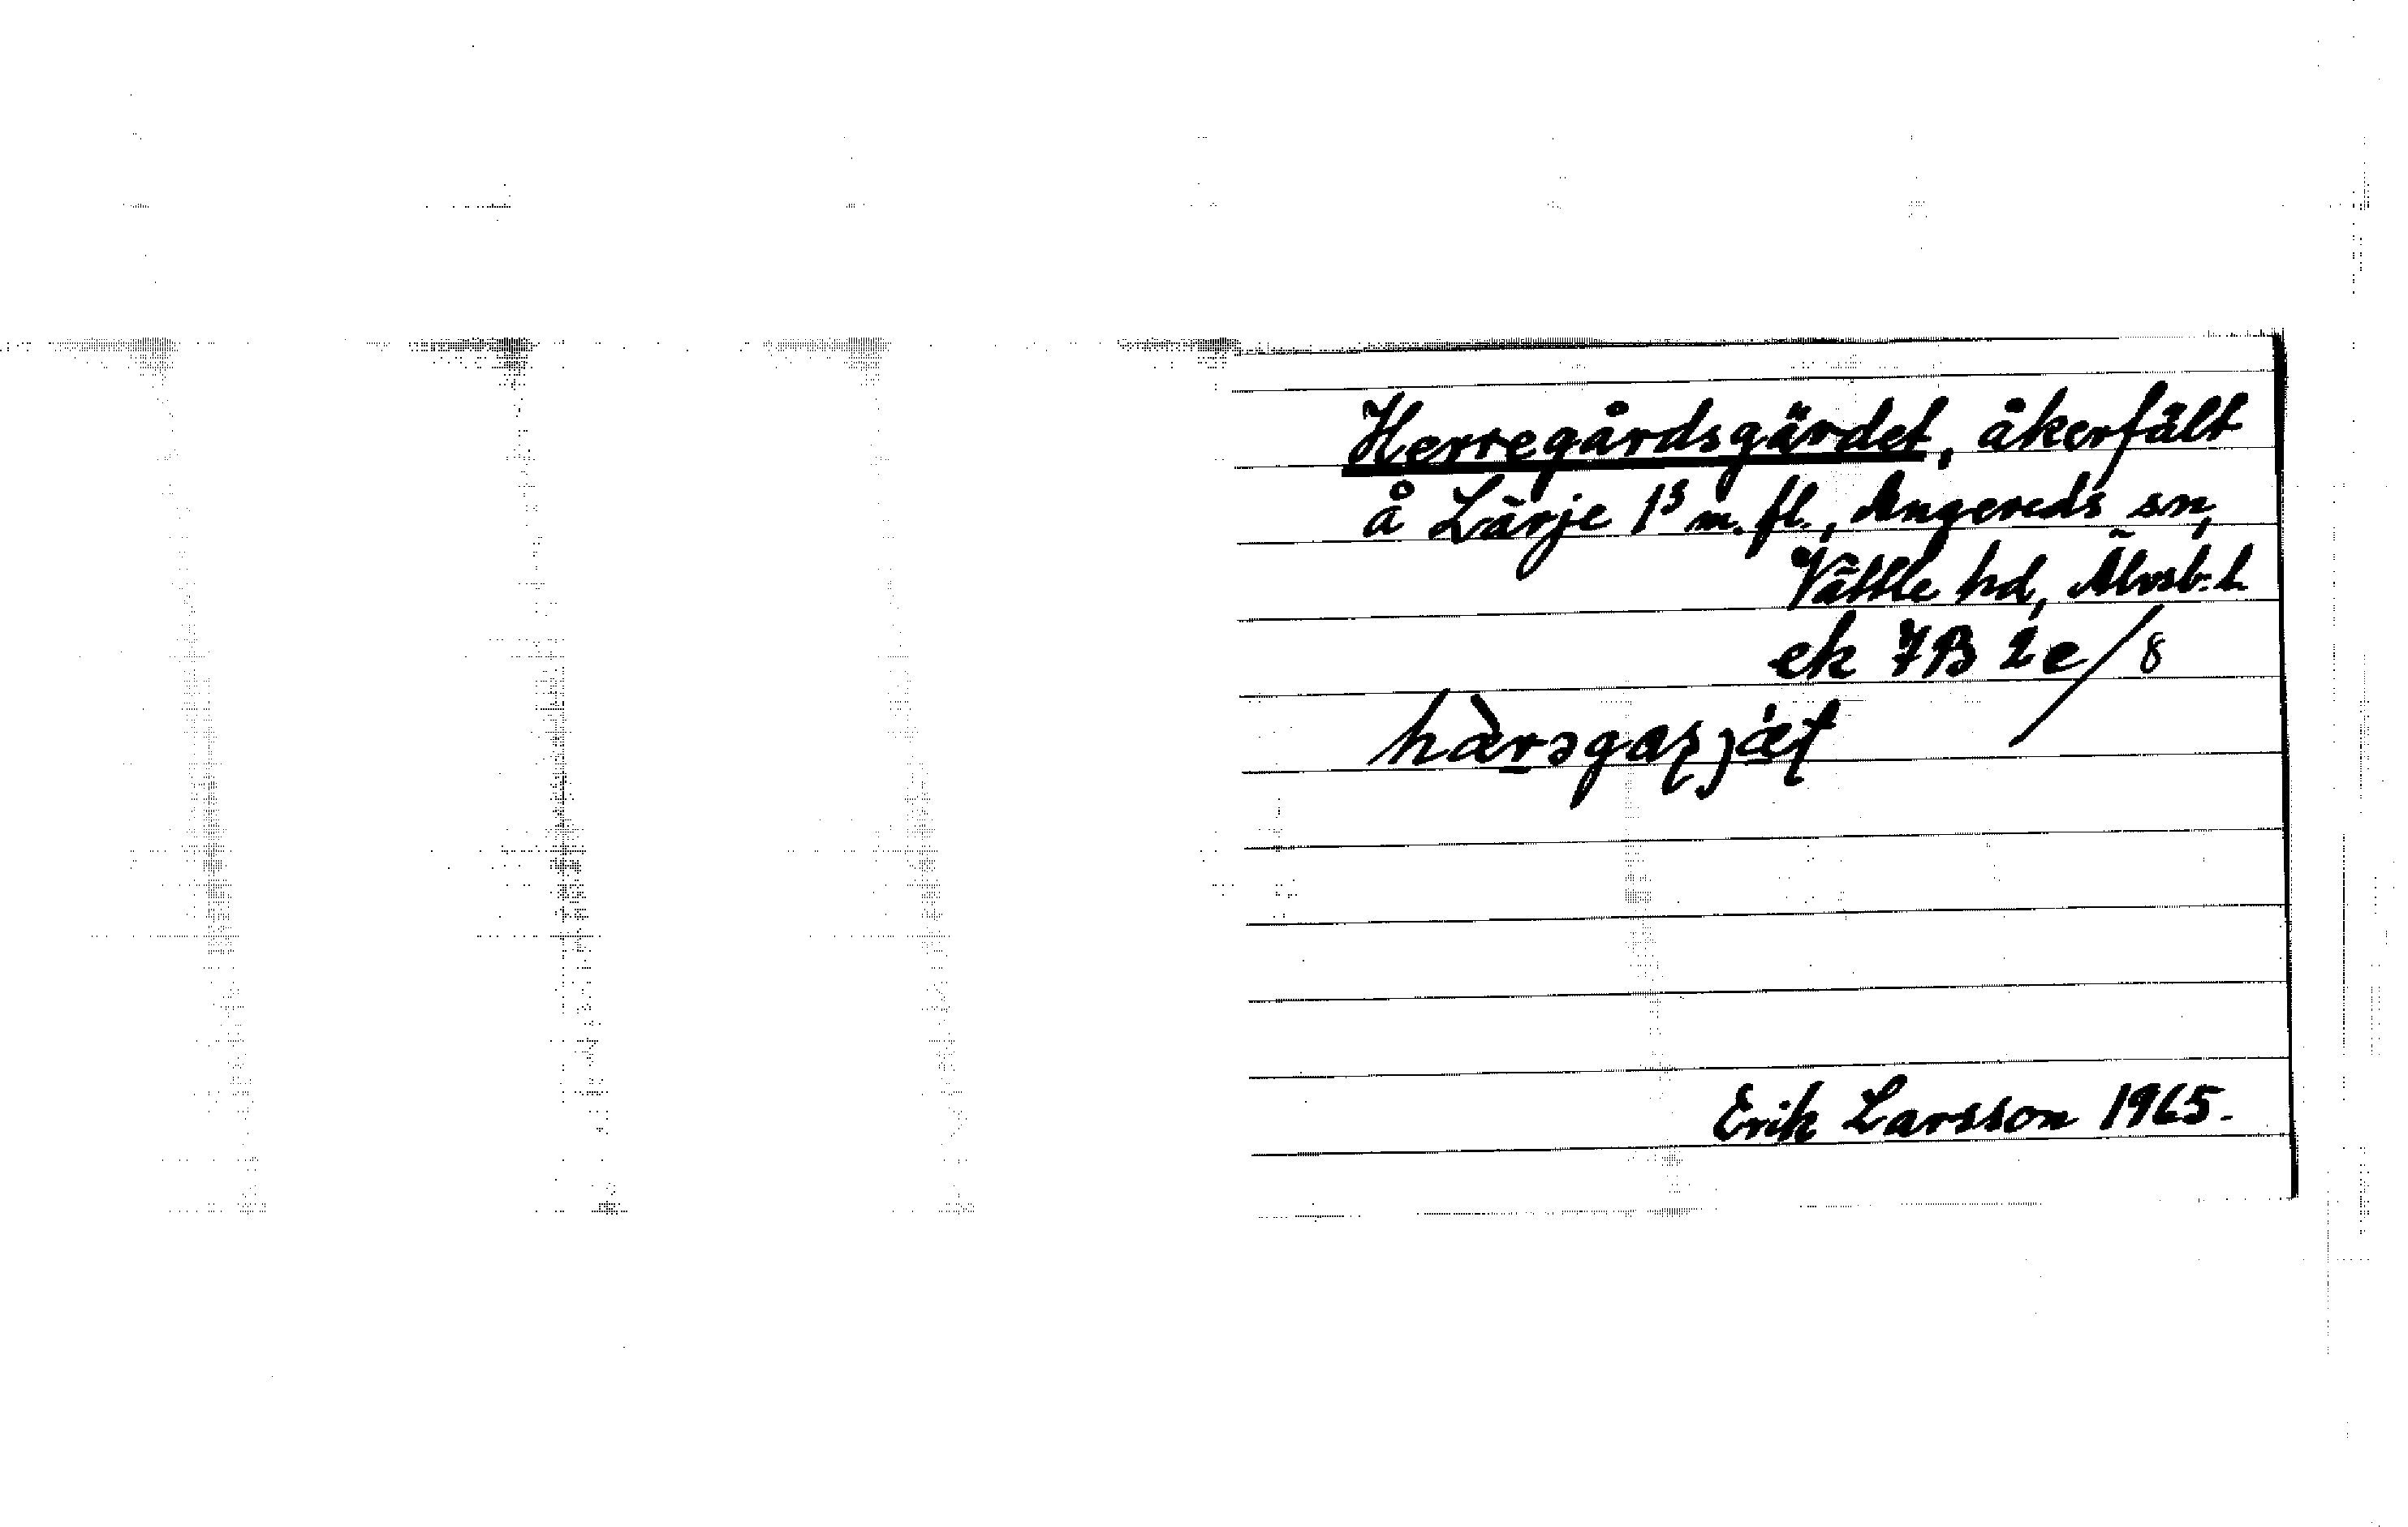 Herregårdsgärdet, åkerfält
å Lärje 1³ m. fl., Angereds sn,
Vättle hd, Älvsb. l.
ek 7B 2e/8
Erik Larsson 1965.